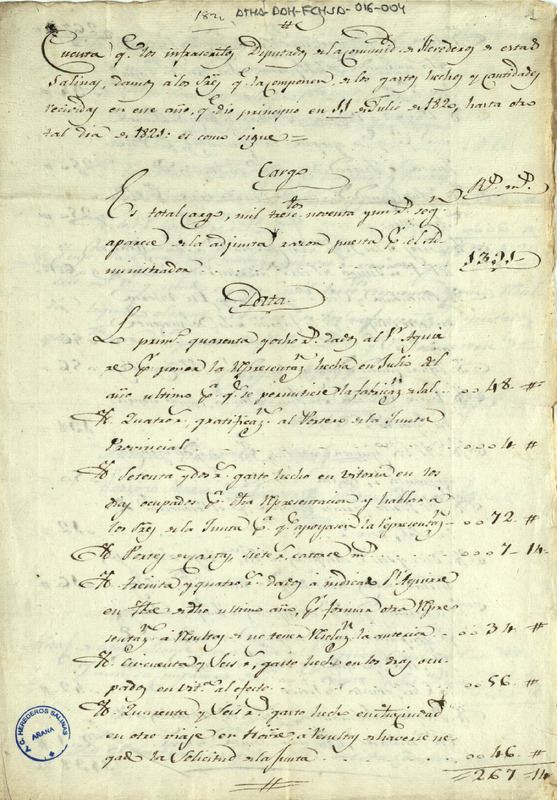 182
ATHA-DAH-FCHSA-016-004
1
#
Cuenta q.e los infrascritos Diputados de la Comunid. de Herederos de estas
Salinas, damos á los Sres q.e la componen de los gastos hechos y cantidades
recividas en este año, q.e dio principio en 11 de Julio de 1820, hasta otro
tal dia de 1821: es como sigue =
Cargo
R.s m.s
Es total cargo, mil tresc.tos noventa y un r.s seg.n
aparece de la adjunta razon puesta p.r el Ad-
ministrador
1391
Data
L prim.te quarenta y ocho r.s dados al P. Aguir
re p.r poner la Representaz.n hecha en Julio del
año ultimo p.a q.e se permitiese la fabricaz.n de sal 48 #
Yt. Quatro r.s gratificaz.n al Portero de la Junta
Provincial 4 #
Yt. Setenta y dos r.s gasto hecho en Vitoria en los
dias ocupados p.a dha Representacion y hablar á
los Sres de la Junta p.a q.e apoyasen la representaz.n 72 #
Yt. Portes de cartas, siete r.s catorce m.s 7-14
Yt. treinta y quatro r.s dados á P. Aguirre
en bre de dho ultimo año, p.r formar otra Repre
sentaz.n á resultas de no tener la anterior 34 #
Yt. Cincuenta y Seis r.s gasto hecho en los dias ocu-
pados en Vit.a al efecto 56 #
Yt. Quarenta y Seis r.s gasto hecho en dha ciudad
en otro viaje en á resultas de haverse ne-
gado la Solicitud de la Junta 46 #
267 14
#
A.G. HEREDEROS SALINAS
AÑANA